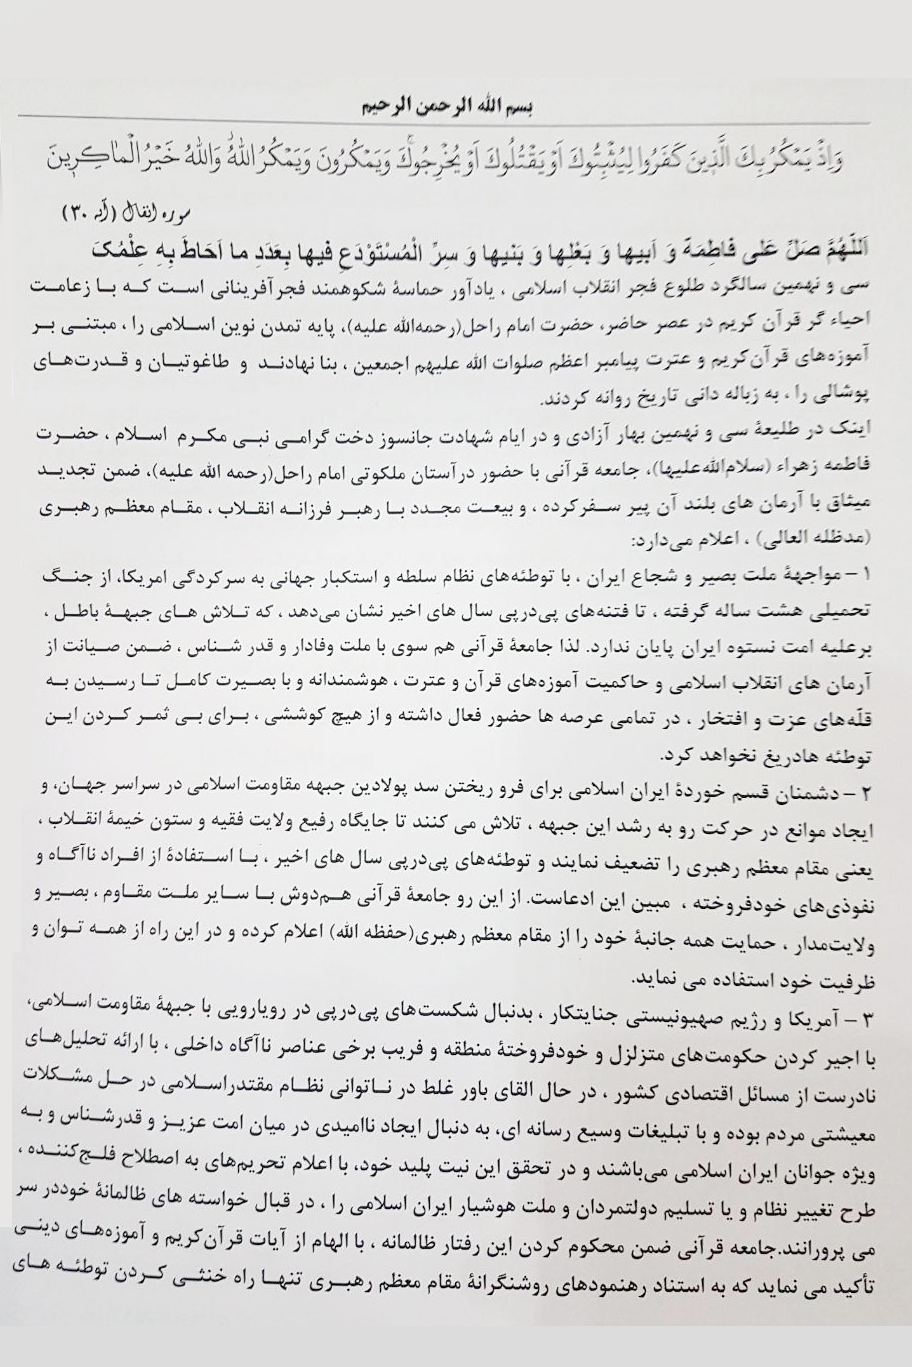 بسم الله الرحمن الرحیم
وَاِذْ يَمْكُرُ بِكَ الَّذينَ كَفَرُوا لِيُثْبِتُوكَ اَوْ يَقْتُلُوكَ اَوْ يُخْرِجُوكَ وَيَمْكُرُونَ وَيَمْكُرُ اللّٰهُ وَاللّٰهُ خَيْرُ الْمٰاكِرينَ
سوره انفال (آیه ۳۰)
اَللّهُمَّ صَلِّ عَلی فاطِمَةَ وَ اَبیها وَ بَعْلِها وَ بَنیها وَ سِرِّ الْمُسْتَوْدَعِ فیها بِعَدَدِ ما اَحاطَ بِهِ عِلْمُکَ
سی و نهمین سالگرد طلوع فجر انقلاب اسلامی ، یادآور حماسۀ شکوهمند فجرآفرینانی است که با زعامت
احیاء گر قرآن کریم در عصر حاضر، حضرت امام راحل(رحمه‌الله علیه)، پایه تمدن نوین اسلامی را ، مبتنی بر
آموزه‌های قرآن‌کریم و عترت پیامبر اعظم صلوات الله علیهم اجمعین ، بنا نهادند و طاغوتیان و قدرت‌های
پوشالی را ، به زباله دانی تاریخ روانه کردند.
اینک در طلیعۀ سی و نهمین بهار آزادی و در ایام شهادت جانسوز دخت گرامی نبی مکرم اسلام ، حضرت
فاطمه زهراء (سلام‌الله‌علیها)، جامعه قرآنی با حضور درآستان ملکوتی امام راحل(رحمه الله علیه)، ضمن تجدید
میثاق با آرمان های بلند آن پیر سفرکرده ، و بیعت مجدد با رهبر فرزانه انقلاب ، مقام معظم رهبری
(مدظله العالی) ، اعلام می‌دارد:
۱– مواجهۀ ملت بصیر و شجاع ایران ، با توطئه‌های نظام سلطه و استکبار جهانی به سرکردگی امریکا، از جنگ
تحمیلی هشت ساله گرفته ، تا فتنه‌های پی‌درپی سال های اخیر نشان می‌دهد ، که تلاش های جبهۀ باطل ،
برعلیه امت نستوه ایران پایان ندارد. لذا جامعۀ قرآنی هم سوی با ملت وفادار و قدر شناس ، ضمن صیانت از
آرمان های انقلاب اسلامی و حاکمیت آموزه‌های قرآن و عترت ، هوشمندانه و با بصیرت کامل تا رسیدن به
قلّه‌های عزت و افتخار ، در تمامی عرصه ها حضور فعال داشته و از هیچ کوششی ، برای بی ثمر کردن این
توطئه هادریغ نخواهد کرد.
۲ – دشمنان قسم خوردۀ ایران اسلامی برای فرو ریختن سد پولادین جبهه مقاومت اسلامی در سراسر جهان، و
ایجاد موانع در حرکت رو به رشد این جبهه ، تلاش می کنند تا جایگاه رفیع ولایت فقیه و ستون خیمۀ انقلاب ،
یعنی مقام معظم رهبری را تضعیف نمایند و توطئه‌های پی‌درپی سال های اخیر ، با استفادۀ از افراد ناآگاه و
نفوذی‌های خودفروخته ، مبین این ادعاست. از این رو جامعۀ قرآنی هم‌دوش با سایر ملت مقاوم ، بصیر و
ولایت‌مدار ، حمایت همه جانبۀ خود را از مقام معظم رهبری(حفظه الله) اعلام کرده و در این راه از همه توان و
ظرفیت خود استفاده می نماید.
۳ – آمریکا و رژیم صهیونیستی جنایتکار ، بدنبال شکست‌های پی‌درپی در رویارویی با جبهۀ مقاومت اسلامی،
با اجیر کردن حکومت‌های متزلزل و خودفروختۀ منطقه و فریب برخی عناصر ناآگاه داخلی ، با ارائه تحلیل‌های
نادرست از مسائل اقتصادی کشور ، در حال القای باور غلط در ناتوانی نظام مقتدراسلامی در حل مشکلات
معیشتی مردم بوده و با تبلیغات وسیع رسانه ای، به دنبال ایجاد ناامیدی در میان امت عزیز و قدرشناس و به
ویژه جوانان ایران اسلامی می‌باشند و در تحقق این نیت پلید خود، با اعلام تحریم‌های به اصطلاح فلج‌کننده ،
طرح تغییر نظام و یا تسلیم دولتمردان و ملت هوشیار ایران اسلامی را ، در قبال خواسته های ظالمانۀ خوددر سر
می پرورانند.جامعه قرآنی ضمن محکوم کردن این رفتار ظالمانه ، با الهام از آیات قرآن‌کریم و آموزه‌های دینی
تأکید می نماید که به استناد رهنمودهای روشنگرانۀ مقام معظم رهبری تنها راه خنثی کردن توطئه های